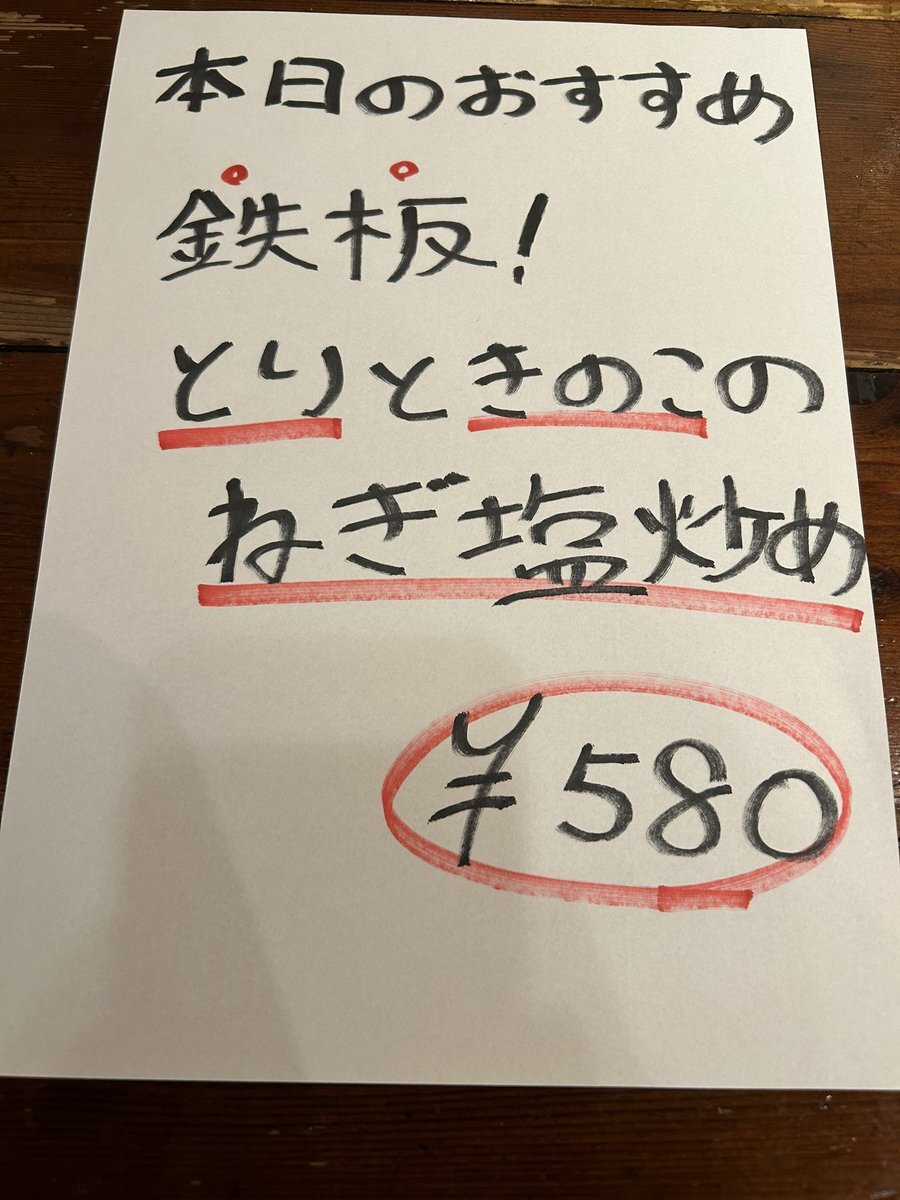 本日のおすすめ
鉄板!
とりときのこの
ねぎ塩炒め
¥580